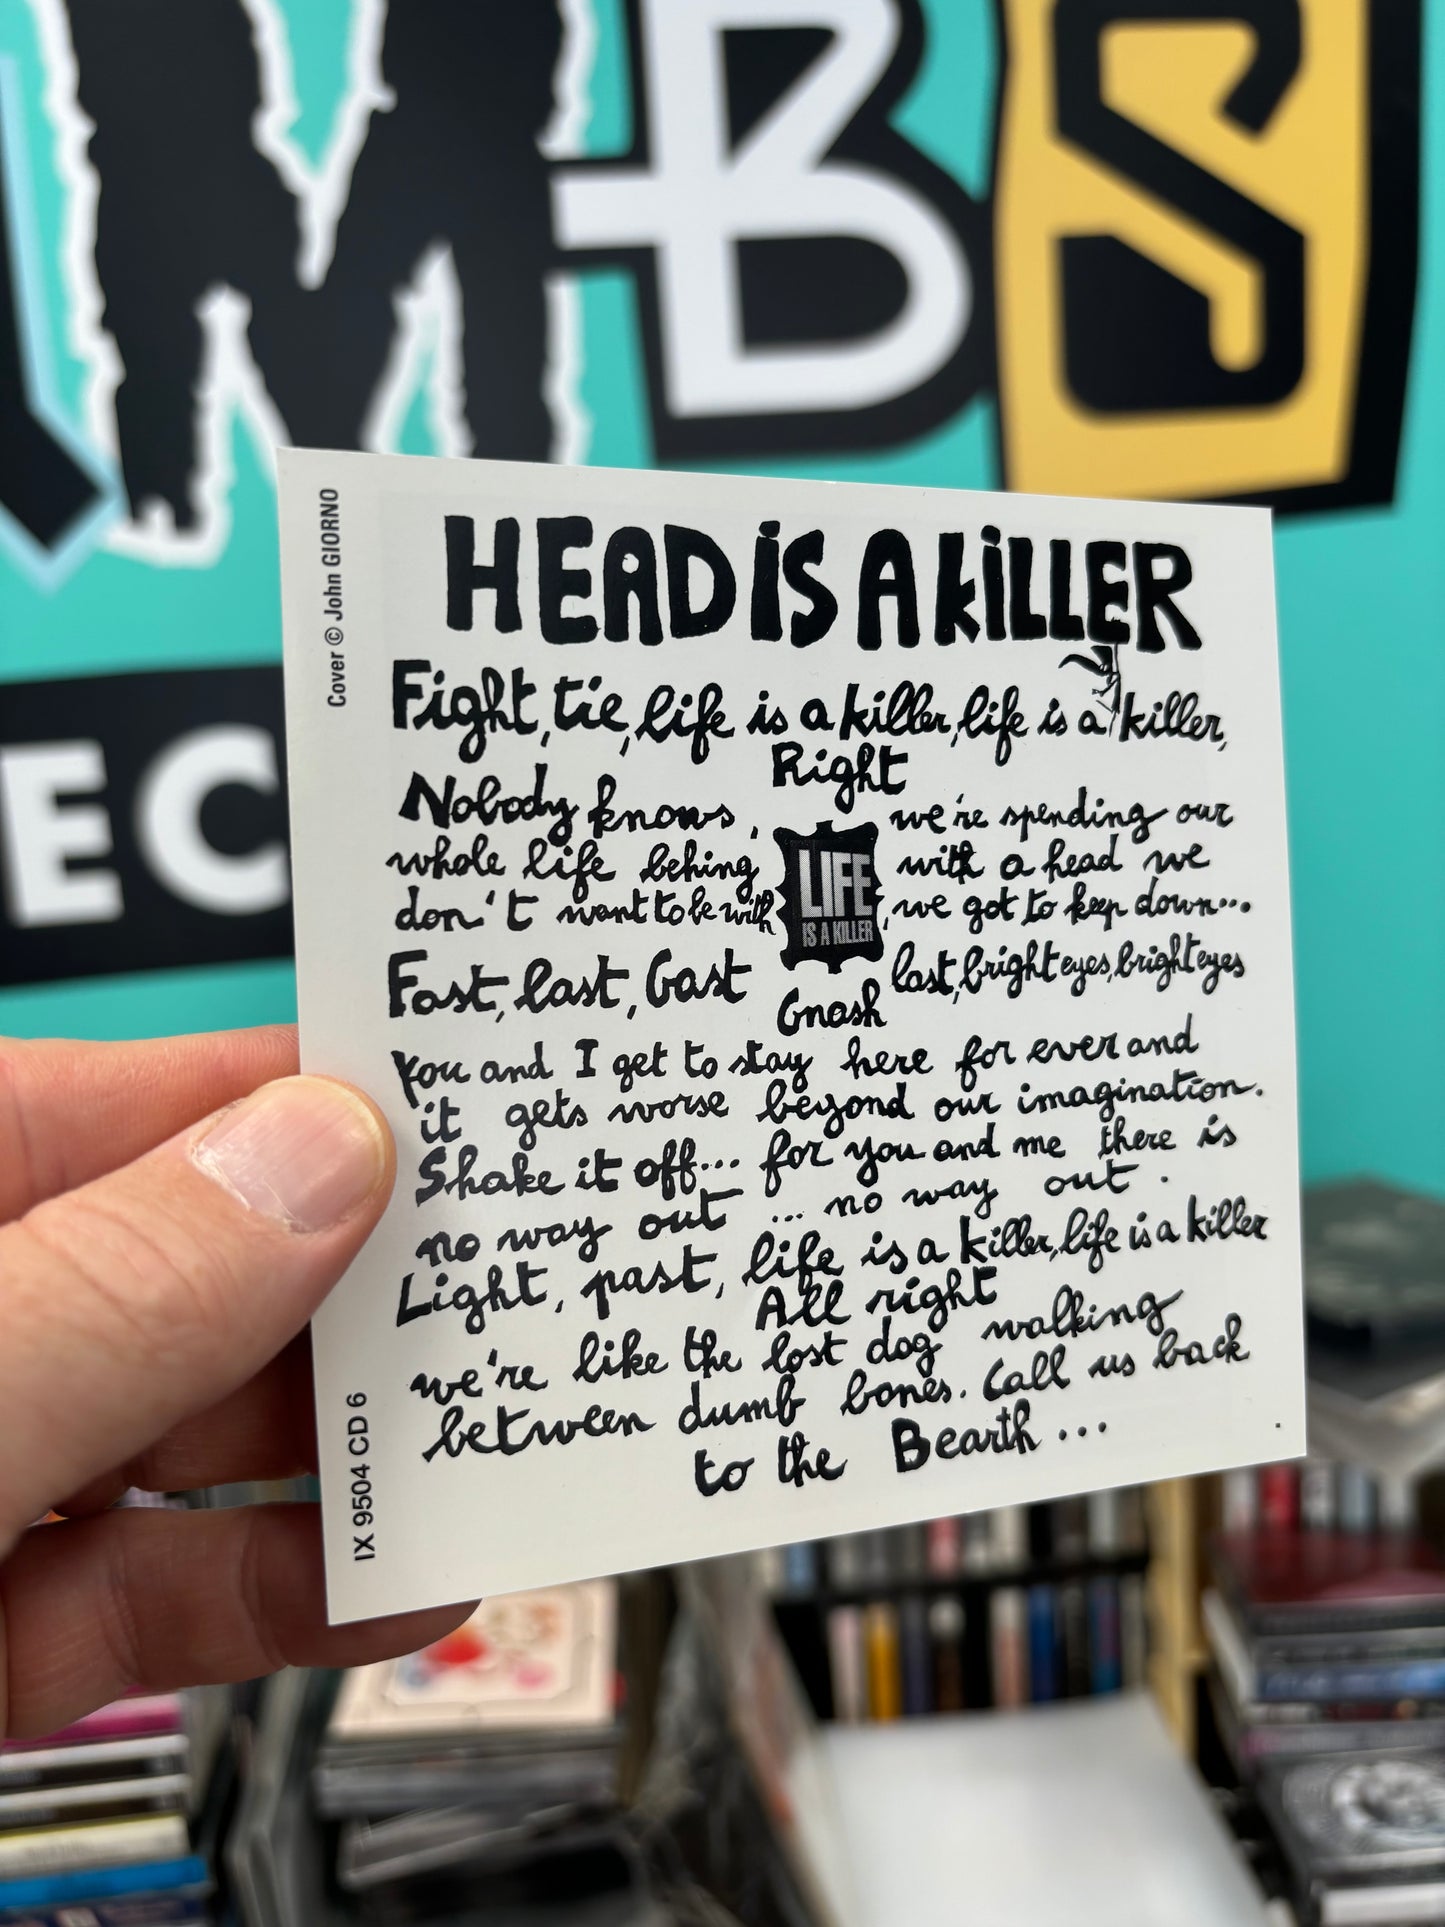 MBS
EC
Cover © John GIORNO
IX 9504 CD 6
HEAD iS A KiLLER
Fight, tie, life is a killer, life is a killer,
Right
Nobody knows, we're spending our
whole life behing with a head we
don't want to be with, we got to keep down...
LIFE
IS A KILLER
Fast, last, Gast last, bright eyes, bright eyes
Gnash
You and I get to stay here for ever and
it gets worse beyond our imagination.
Shake it off... for you and me there is
no way out ... no way out.
Light, past, life is a killer, life is a killer
All right
we're like the lost dog walking
between dumb bones. Call us back
to the Bearth...